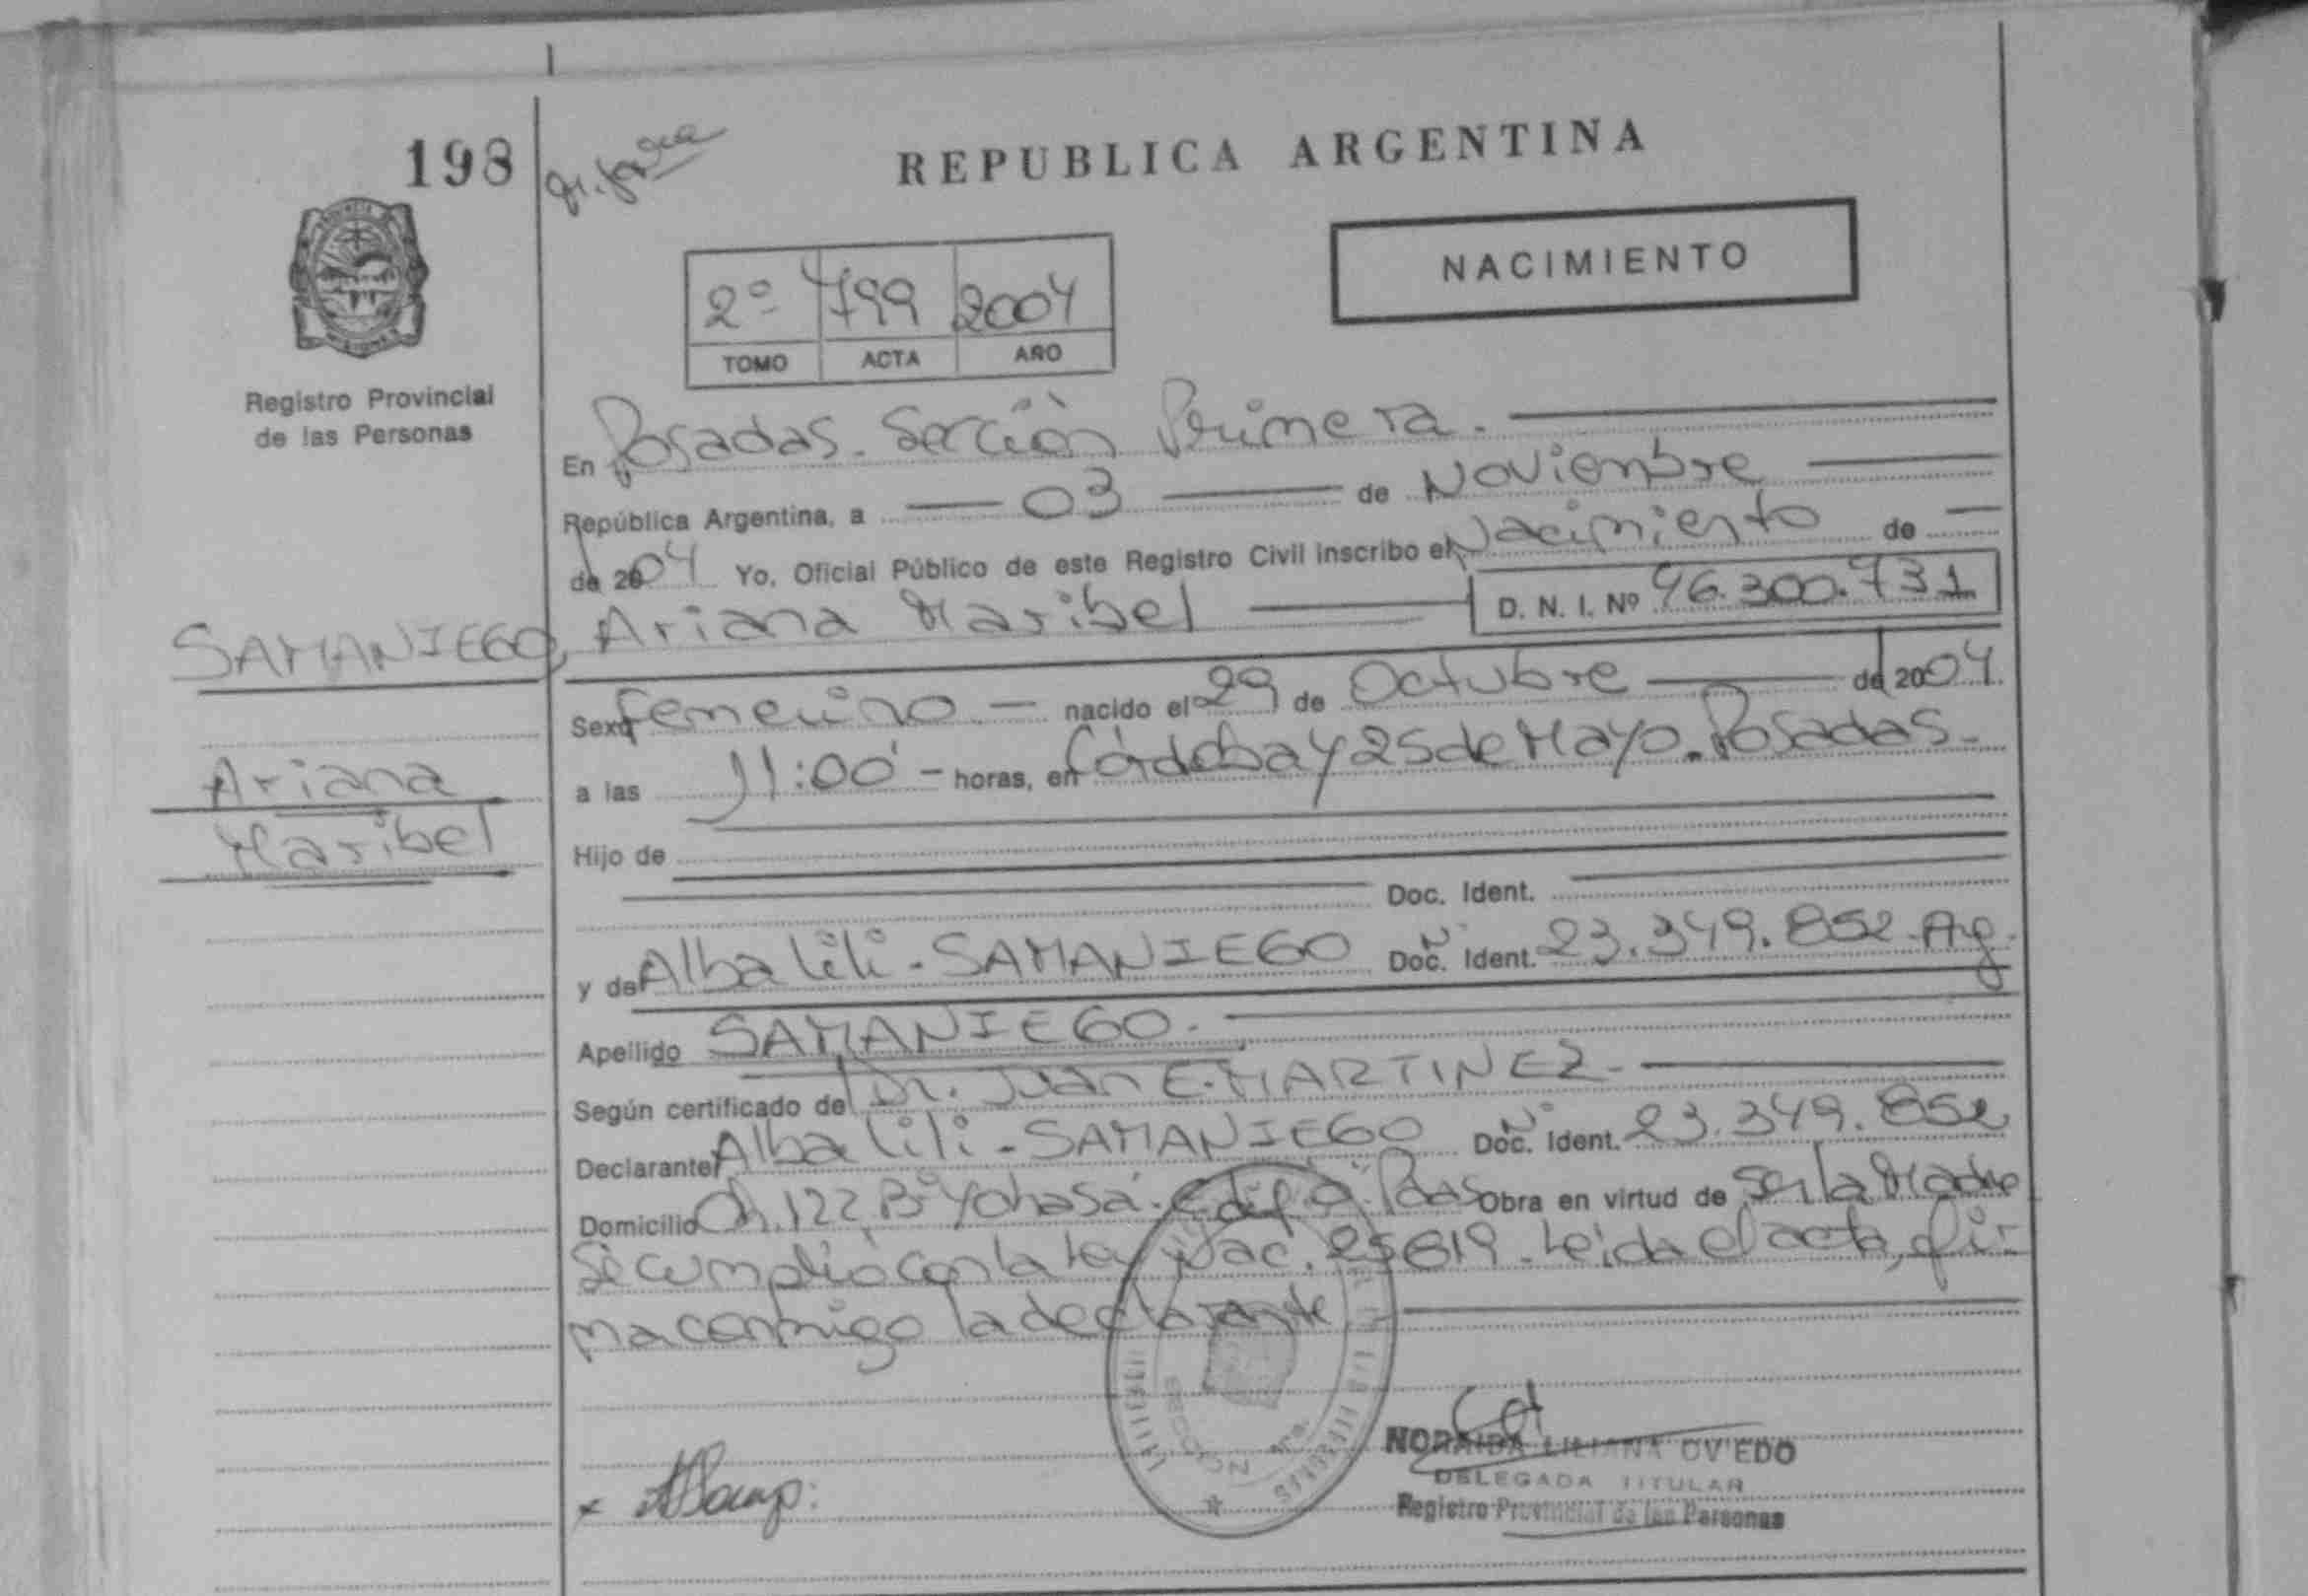 198
REPUBLICA ARGENTINA
NACIMIENTO
2º 799 2004
TOMO ACTA AÑO
Registro Provincial
de las Personas
En Posadas. Sección Primera.
República Argentina, a 03 de Noviembre
de 2004 Yo, Oficial Público de este Registro Civil inscribo el Nacimiento de
SAMANIEGO, Ariana Maribel D. N. I. Nº 46.300.731
Sexo femenino nacido el 29 de Octubre de 2004.
Ariana
Maribel
a las 11:00 horas, en Córdoba y 25 de Mayo. Posadas.
Hijo de
Doc. Ident.
y de Alba Lili. SAMANIEGO Doc. Ident. Nº 23.349.852. Arg.
Apellido SAMANIEGO.
Según certificado de Dr. Juan E. MARTINEZ.
Declarante Alba Lili. SAMANIEGO Doc. Ident. Nº 23.349.852
Domicilio Ch. 122, Bº Yohasá. Edif. Pdas Obra en virtud de ser la Madre
Se cumplió con la Ley Nac. 25819. Leida el acta, fir-
ma conmigo la declarante
NORAIDA LILIANA OVIEDO
DELEGADA TITULAR
Registro Provincial de las Personas